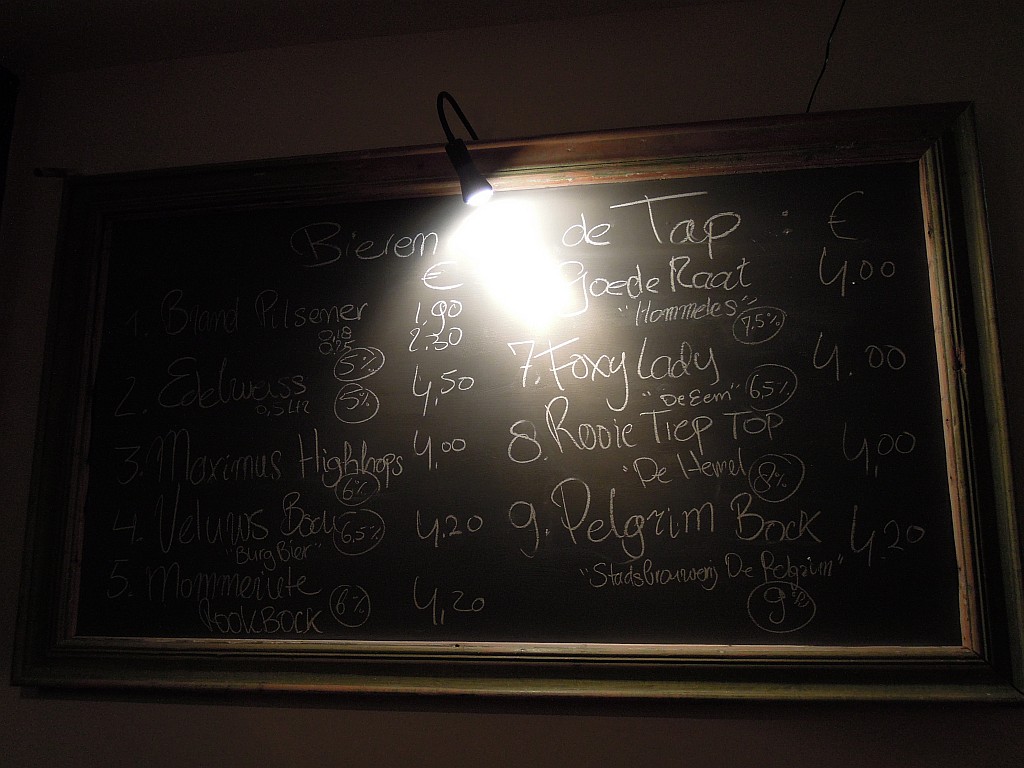 Bieren de Tap : €
€
1. Brand Pilsener 1.90
0,18
0.25 2.30
5%
2. Edelweiss 4,50
0,5 Ltr 5%
3. Maximus Highhops 4,00
6%
4. Veluws Bock 6,5% 4.20
"Burg Bier"
5. Mommeriete 4,20
Rookbock 6%
Goede Raat 4.00
"Hommeles" 7,5%
7. Foxy Lady 4.00
"De Eem" 6,5%
8. Rooie Tiep Top 4,00
"De Hemel 8%
9. Pelgrim Bock 4.20
"Stadsbrouwerij De Pelgrim"
9%